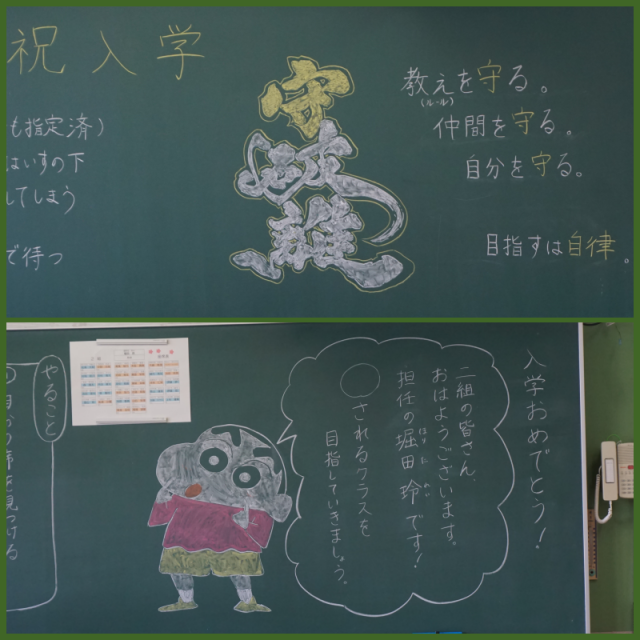 祝入学
も指定済)
はいすの下
してしまう
で待つ
守破離
教えを守る。
(ルール)
仲間を守る。
自分を守る。
目指すは自律。
入学おめでとう!
二組の皆さん、
おはようございます。
担任の堀田玲です!
されるクラスを
目指していきましょう。
やること